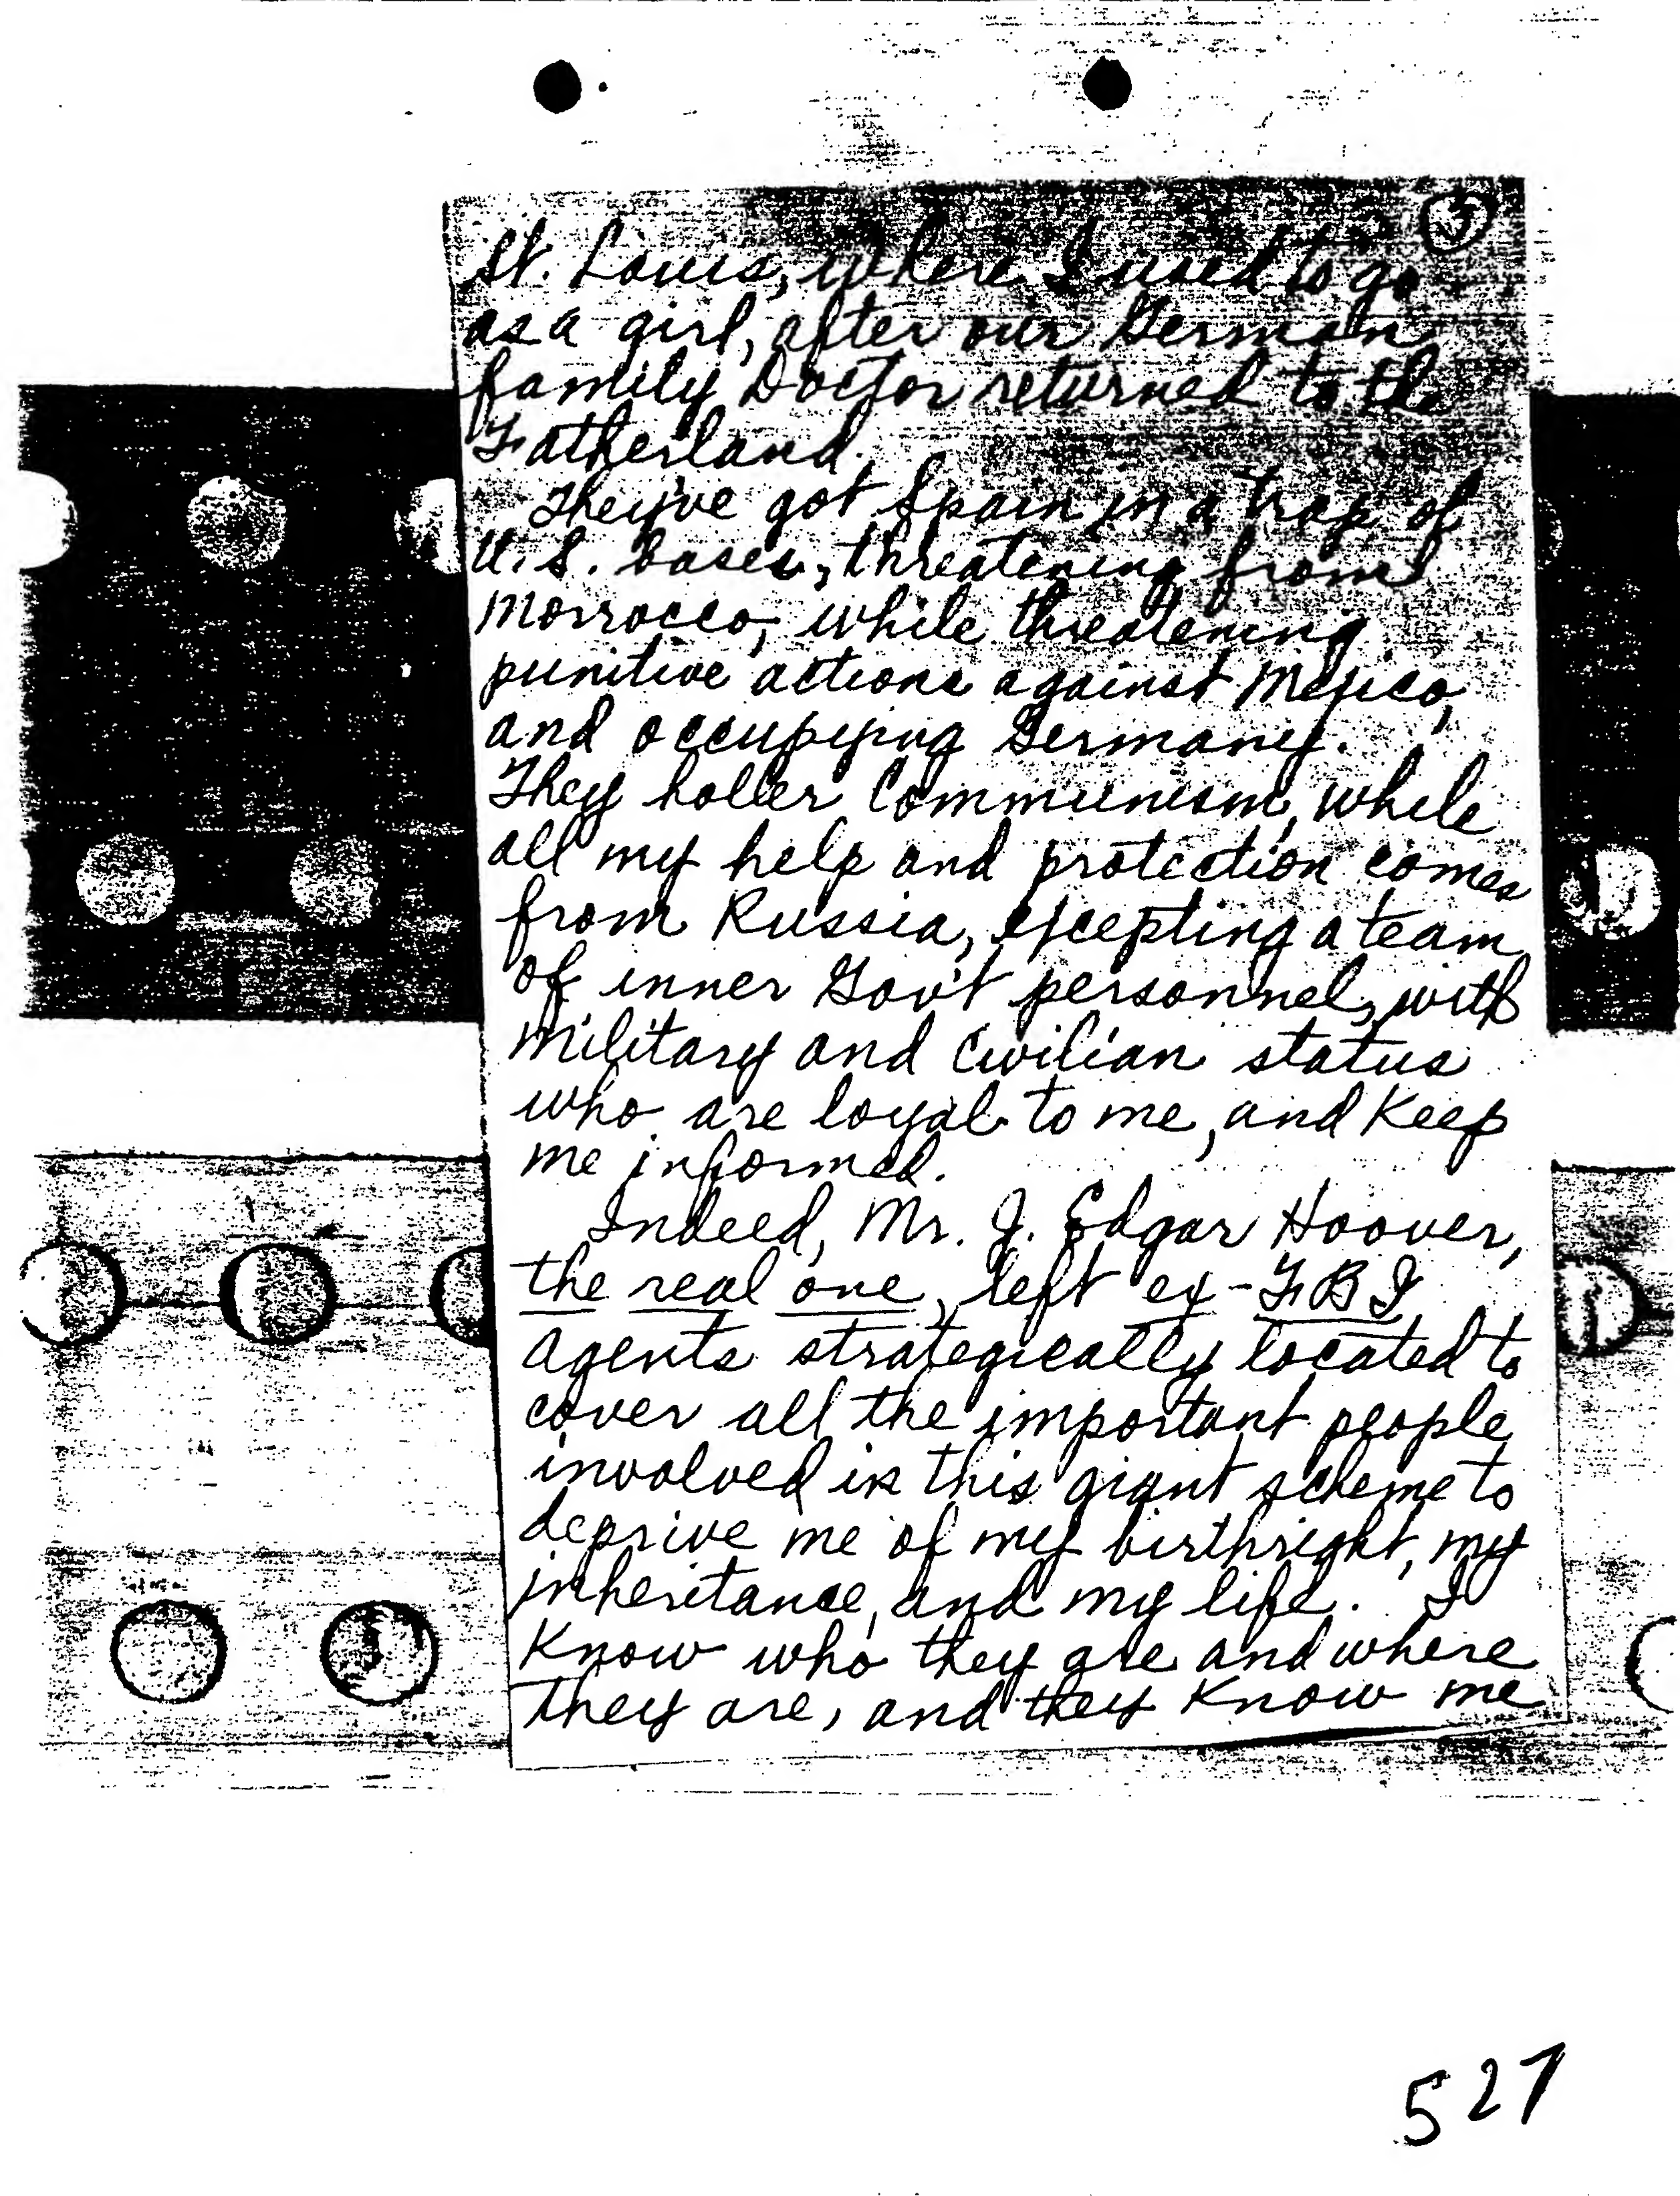 St. Louis, where I used to go
as a girl, after our German
family Doctor returned to the
Fatherland.
They've got Spain in a trap of
U.S. bases, threatening from
Morrocco, while threatening
punitive actions against Mexico,
and occupying Germany.
They holler Communism, while
all my help and protection comes
from Russia, excepting a team
of inner Gov't personnel, with
military and Civilian status
who are loyal to me, and Keep
me informed.
Indeed, Mr. J. Edgar Hoover,
the real one, left ex-FBI
agents strategically located to
cover all the important people
involved in this giant scheme to
deprive me of my birthright, my
inheritance, and my life. I
Know who they are and where
they are, and they Know me
527